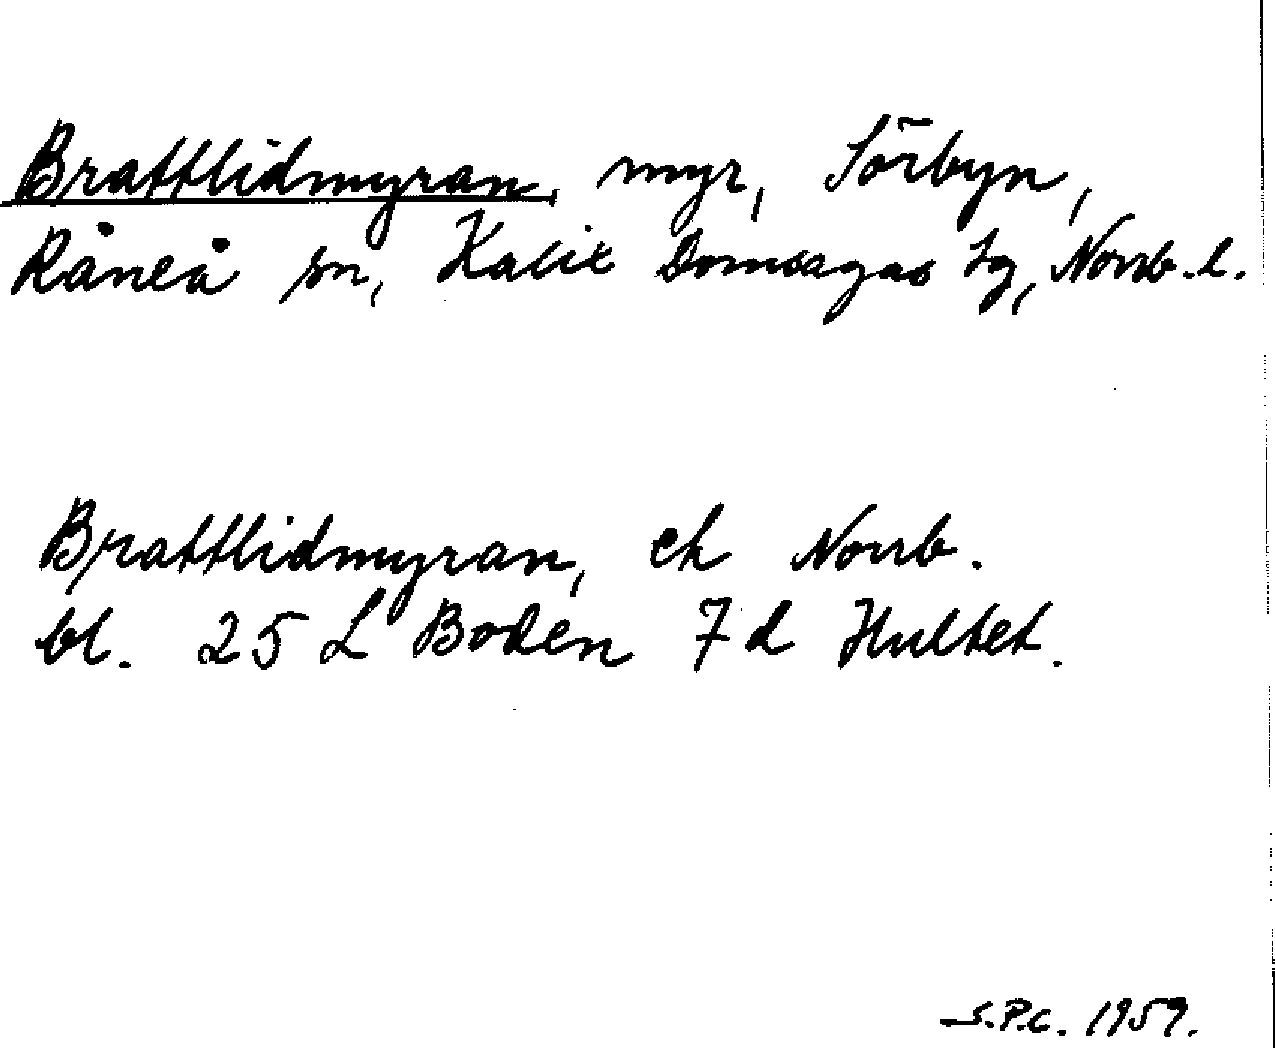 Brattlidmyran, myr, Sörbyn,
Råneå sn, Kalix Domsagas tg, Norrb. l.
Brattlidmyran, ek Norrb.
bl. 25 L Boden 7 d Hultet.
S.P.C. 1959.